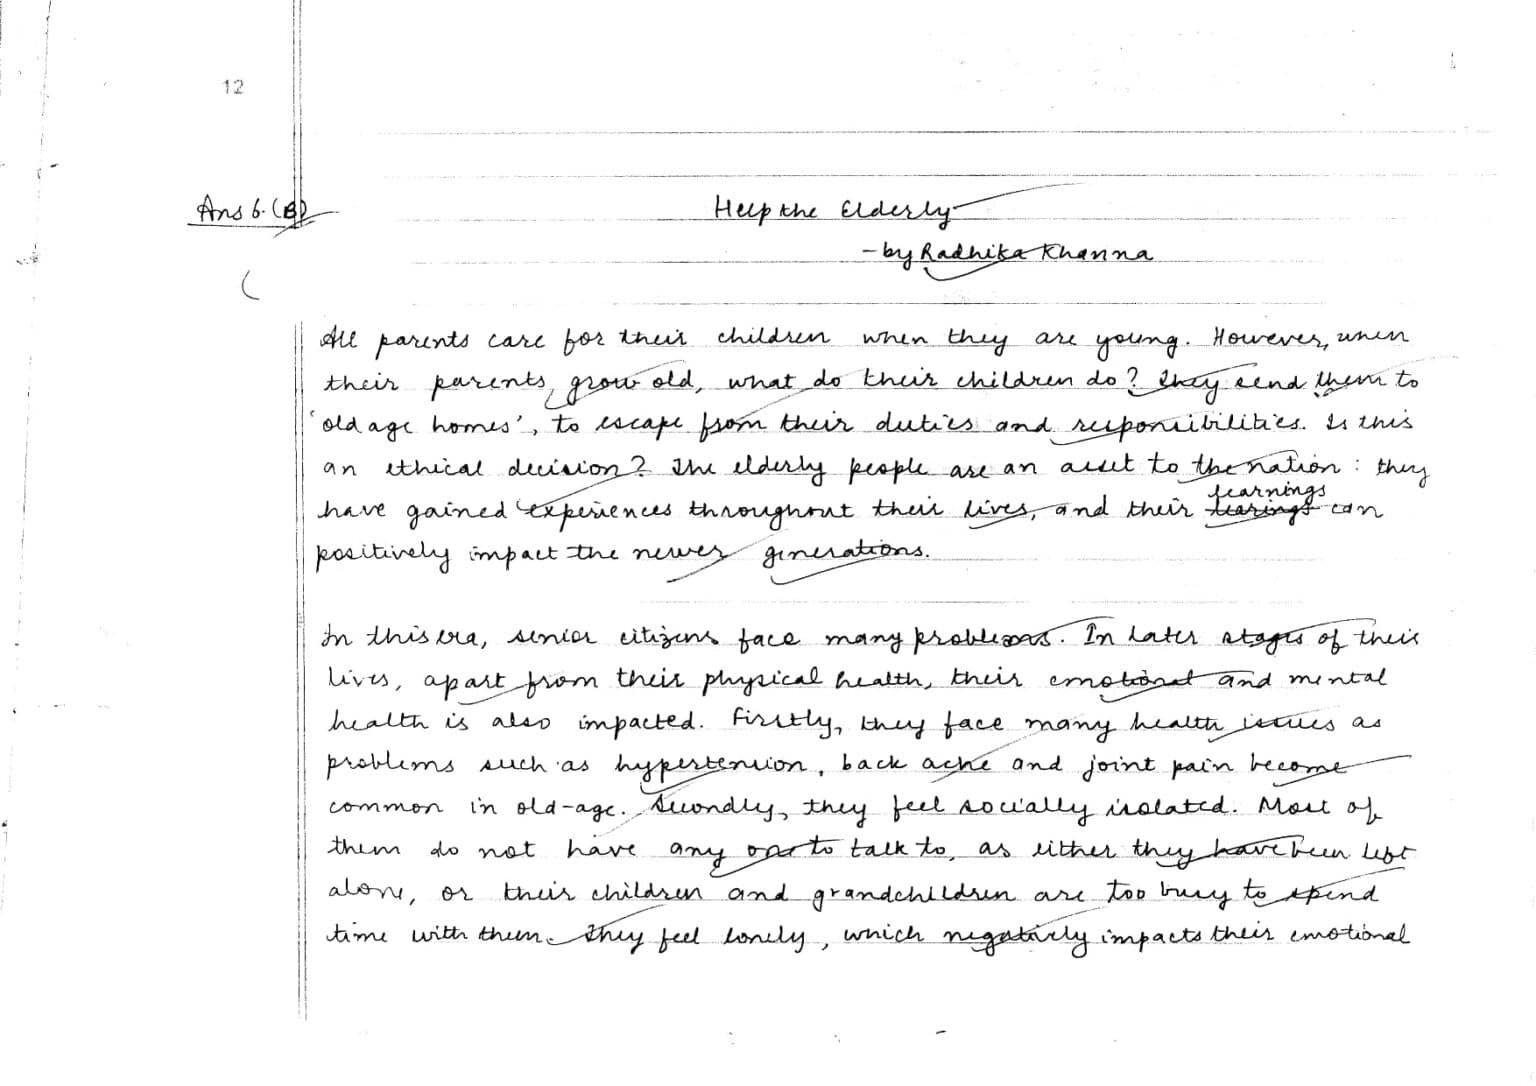 12
Ans 6. (B)
Help the Elderly
- by Radhika Khanna
All parents care for their children when they are young. However, when
their parents grow old, what do their children do? They send them to
'old age homes', to escape from their duties and responsibilities. Is this
an ethical decision? The elderly people are an asset to the nation : they
have gained experiences throughout their lives, and their learnings can
positively impact the newer generations.
In this era, senior citizens face many problems. In later stages of their
lives, apart from their physical health, their emotional and mental
health is also impacted. Firstly, they face many health issues as
problems such as hypertension, back ache and joint pain become
common in old-age. Secondly, they feel socially isolated. Most of
them do not have any one to talk to, as either they have been left
alone, or their children and grandchildren are too busy to spend
time with them. They feel lonely, which negatively impacts their emotional